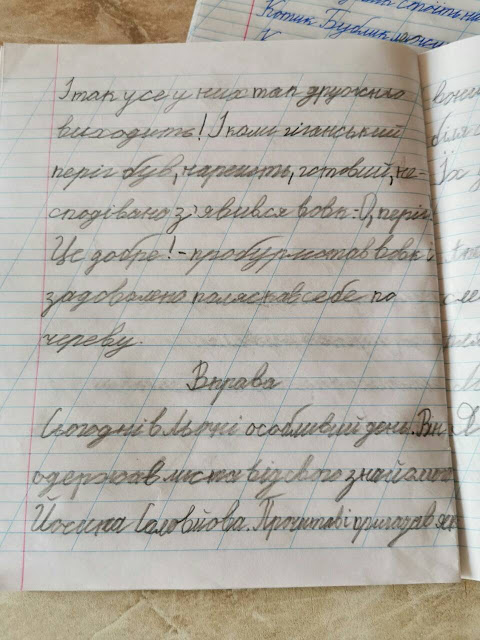 Котик Бублик
І так усе у них там дружно
виходить! І коли гіганський
періг був, нарешть, готовий, не-
сподівано з'явився вовк:-О, періг!
Це добре!-пробурмотав вовк і
задоволено поляскав себе по
череву.
Вправа
Сьогодні в Льочі особливий день. Він
одержав листа від свого знайомого
Йосипа Соловйова. Прочитав і пригадав як